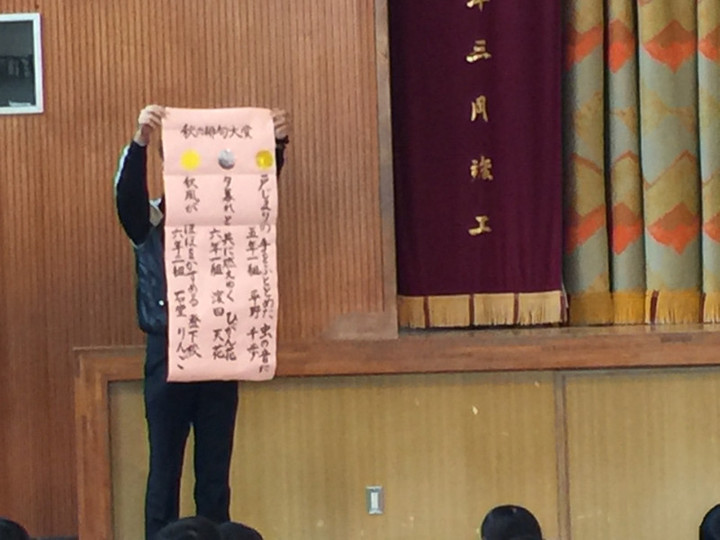 秋の俳句大賞
戸じまりの 手をふととめた 虫の音に
五年一組
夕暮れと 共に燃えゆく ひがん花
六年一組 濱田 天花
秋風が ほほをかすめる 登下校
六年二組 石堂 りんご
年三月竣工